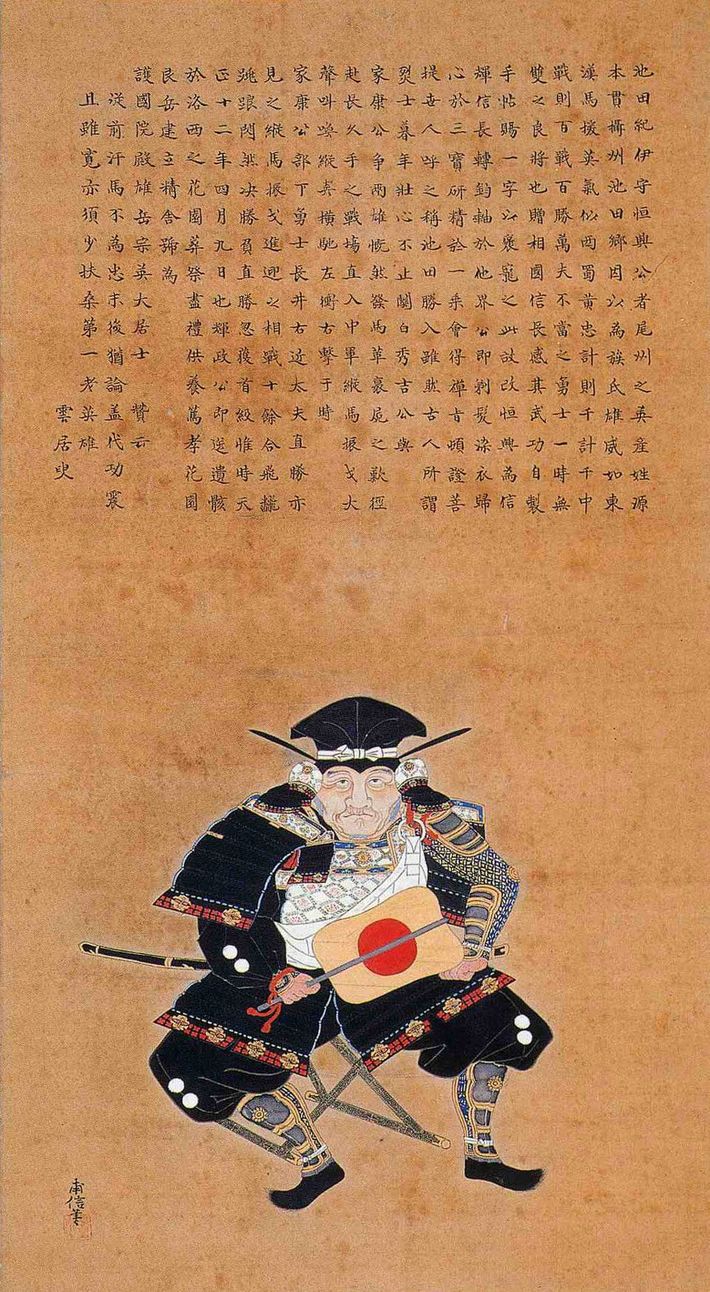 池田紀伊守恒興公者尾州之英産姓源
本貫攝州池田郷因以為族氏雄威如東
漢馬援英氣似西蜀黄忠計則千計千中
戰則百戰百勝萬夫不當之勇士一時無
雙之良將也贈相國信長感其武功自製
手帖賜一字以褒寵之此故改恒興為信
輝信長轉鈞軸於他界公即剃髪染衣歸
心於三寶研精於一乘會得禪旨頓證菩
提世人呼之稱池田勝入雖然古人所謂
烈士暮年壯心不止關白秀吉公與
家康公争兩雄慨然發馬革裹屍之歎徑
赴長久手之戰場直入中軍縱馬振戈大
聲叫喚縱奔横馳左衝右撃于時
家康公部下勇士長井右近太夫直勝亦
見之縱馬振戈進迎之相戰十餘合飛
跳踉閃然决勝負直勝忽獲首級惟時天
正十二年四月九日也輝政公即送遺骸
於洛西之花園葬祭盡禮供養篤孝花園
艮岳建立精舎號為
護國院殿雄岳宗英大居士 贊云
從前汗馬不為忠末後猶論盖代功震
且雖寛亦須少扶桑第一老英雄
雲居叟
甫信筆